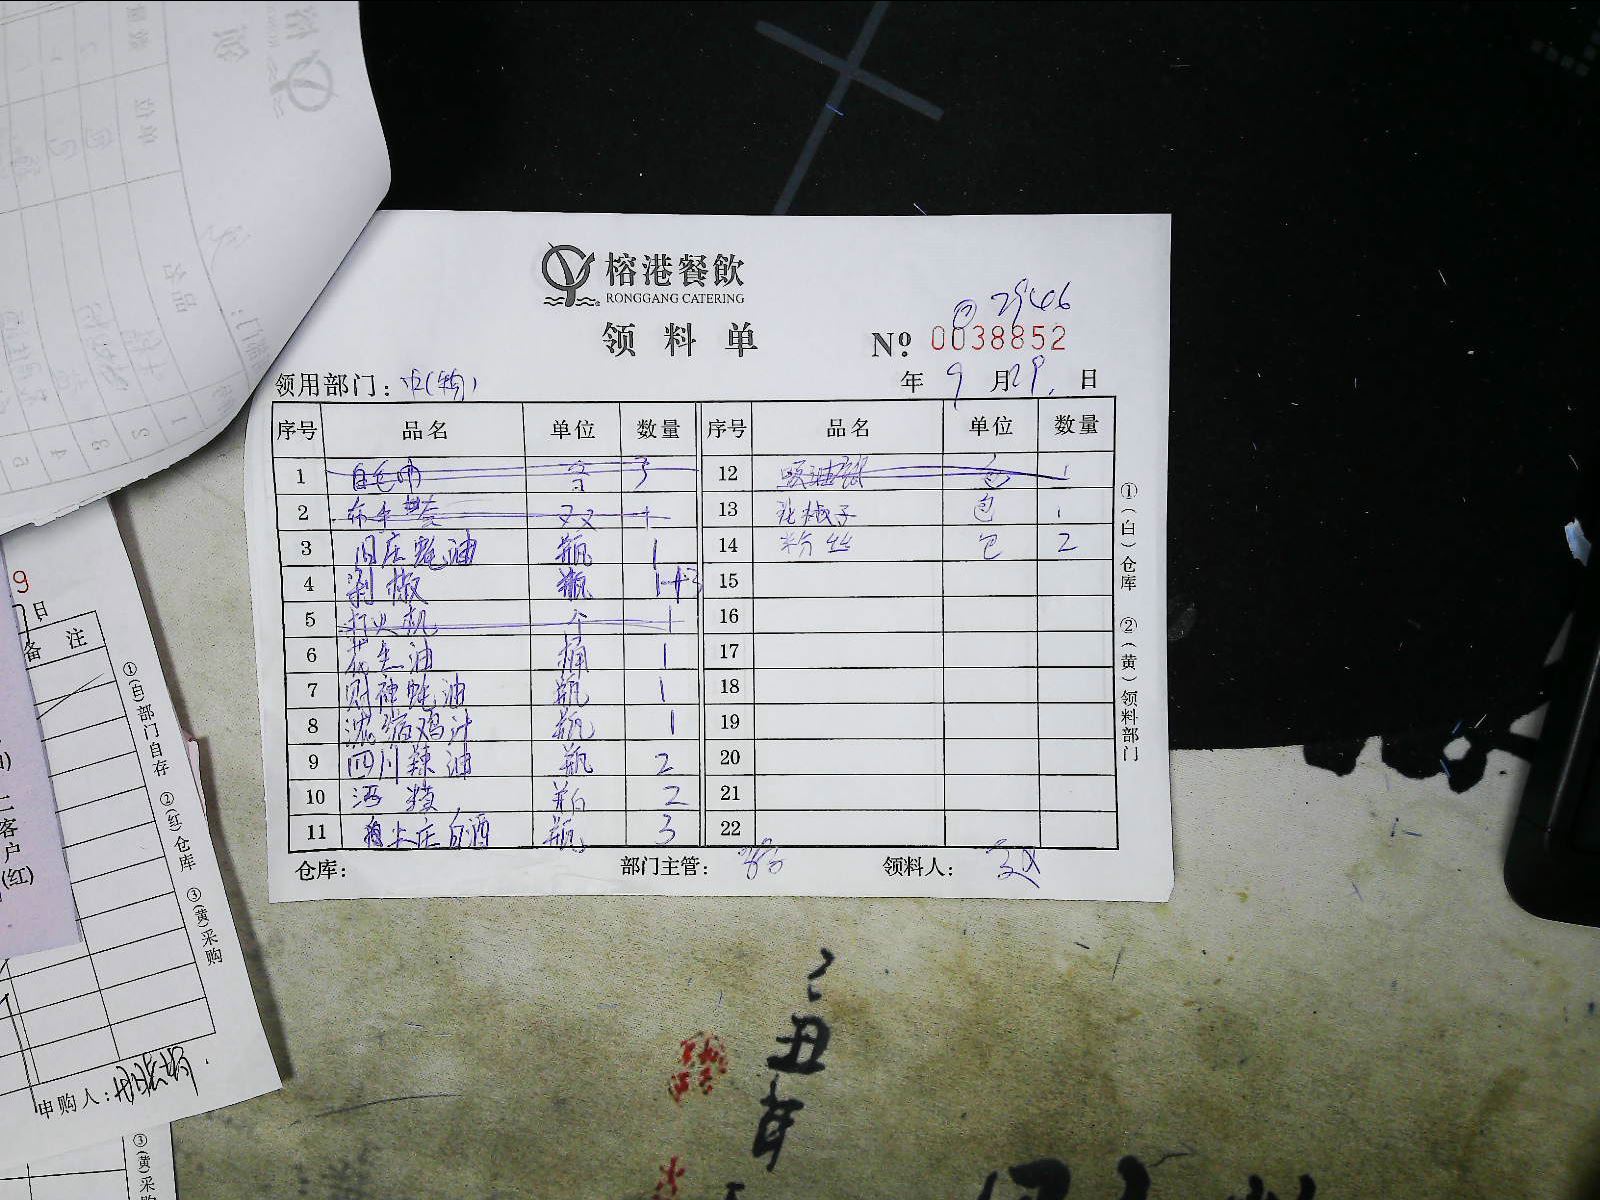 榕港餐飲
RONGGANG CATERING
领料单
№ 0038852
领用部门：
年 9 月 29 日
序号 品名 单位 数量 序号 品名 单位 数量
1 3 12 吸油纸 包 1
2 布手套 双 13 花椒子 包 1
3 旧庄蚝油 瓶 1 14 粉丝 包 2
4 剁椒 瓶 1+3 15
5 打火机 个 1 16
6 花生油 桶 1 17
7 财神蚝油 瓶 1 18
8 浓缩鸡汁 瓶 1 19
9 四川辣油 瓶 2 20
10 酒 2 21
11 庄白酒 瓶 3 22
仓库： 部门主管： 领料人：
①(白)仓库 ②(黄)领料部门
9
日
备注
①(白)部门自存 ②(红)仓库 ③(黄)采购
客
户
(红)
申购人：
③(黄)采
丑
年